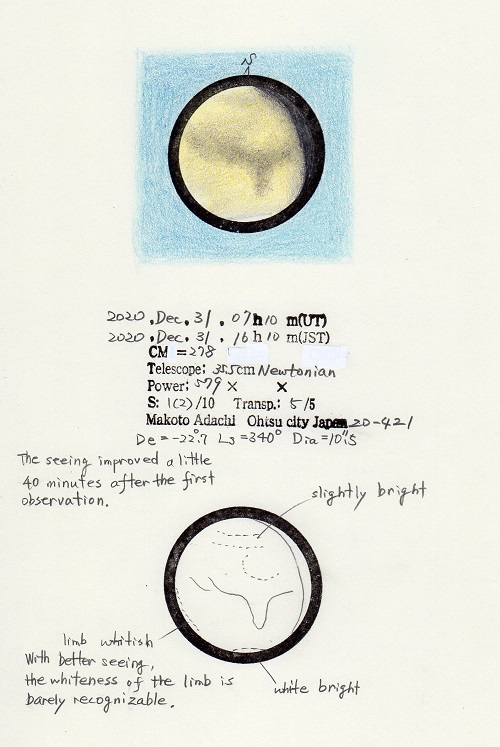 S
2020, Dec. 31. 07h10 m(UT)
2020, Dec. 31. 16h10 m(JST)
CM =278
Telescope: 35.5cm Newtonian
Power: 579 × ×
S: 1(2)/10 Transp.: 5/5
Makoto Adachi Ohtsu city Japan 20-421
De=-22°.7 Ls=340° Dia=10".5
The seeing improved a little
40 minutes after the first
observation.
slightly bright
limb whitish
With better seeing,
the whiteness of the limb is
barely recognizable.
white bright